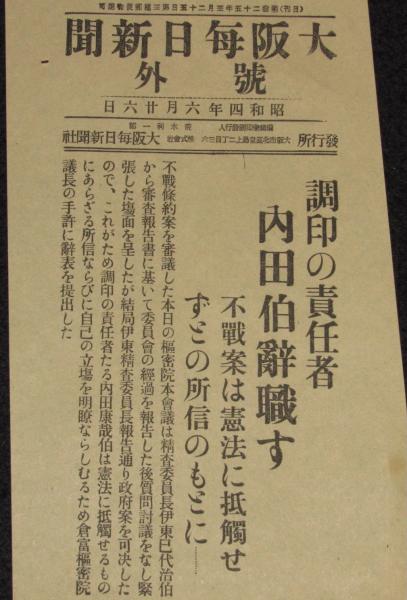 聞新日每阪大
外號
日六廿月六年四和昭
發行所
大阪市北區堂島上二丁目三六
社聞新日每阪大
調印の責任者
內田伯辭職す
不戰案は憲法に抵觸せ
ずとの所信のもとに……
不戰條約案を審議した本日の樞密院本會議は精査委員長伊東巳代治伯
から審査報告書に基いて委員會の經過を報告した後質問討議をなし緊
張した塲面を呈したが結局伊東精査委員長報告通り政府案を可決した
ので、これがため調印の責任者たる內田康哉伯は憲法に抵觸せるもの
にあらざる所信ならびに自己の立塲を明瞭ならしむるため倉富樞密院
議長の手許に辭表を提出した